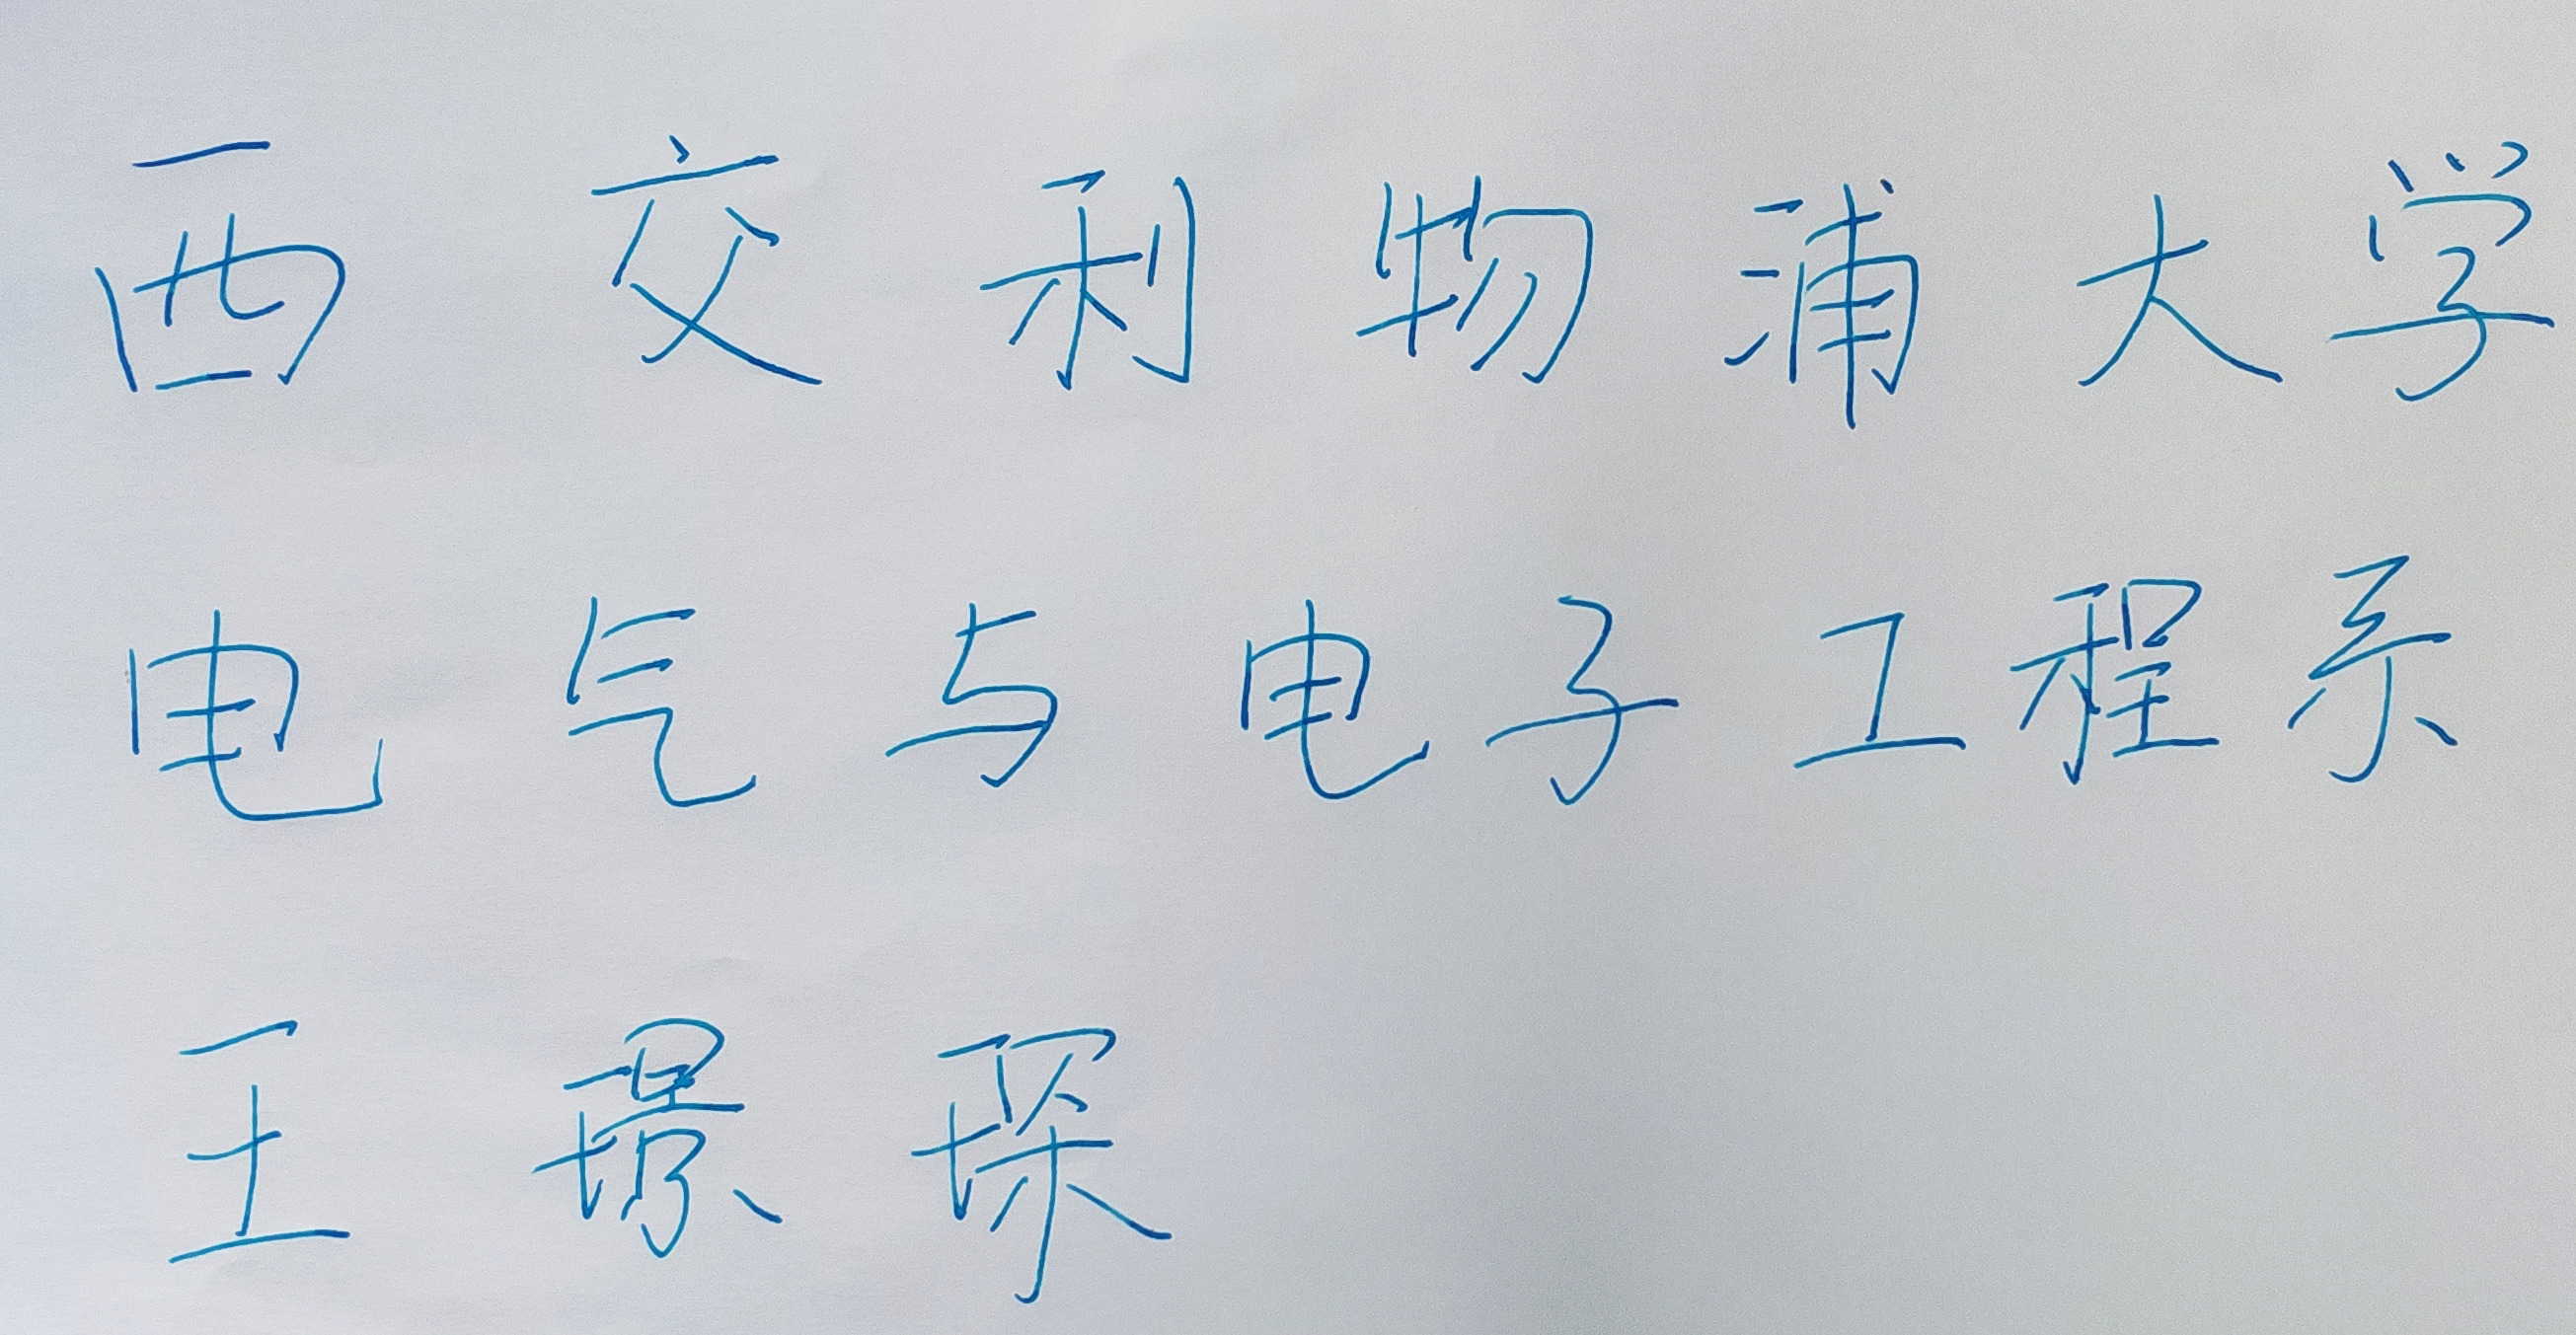 西交利物浦大学
电气与电子工程系
王璟琛